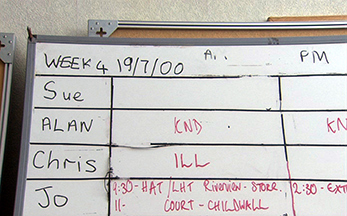 WEEK 4 19/7/00 A.. PM
Sue
ALAN KND KN
Chris ILL
Jo 9:30-HAT/LHT Riverview-STORR. 2:30-EXT
11- COURT-CHILDWALL